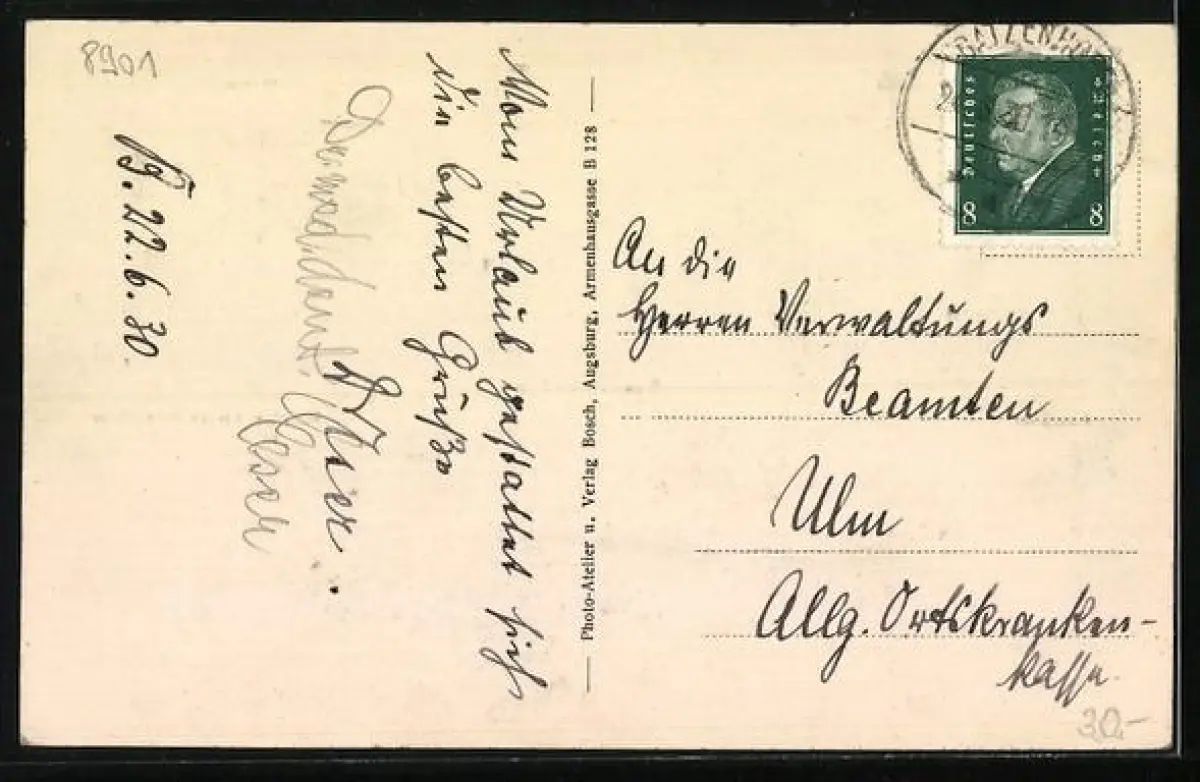 8901
B. 22. 6. 30.
Vom Urlaub gestattet sich
die besten Grüße
Photo-Atelier u. Verlag Bosch, Augsburg, Armenhausgasse B 128
Deutsches Reich
8 8
An die
Herren Verwaltungs
Beamten
Ulm
Allg. Ortskranken-
kasse.
30,-